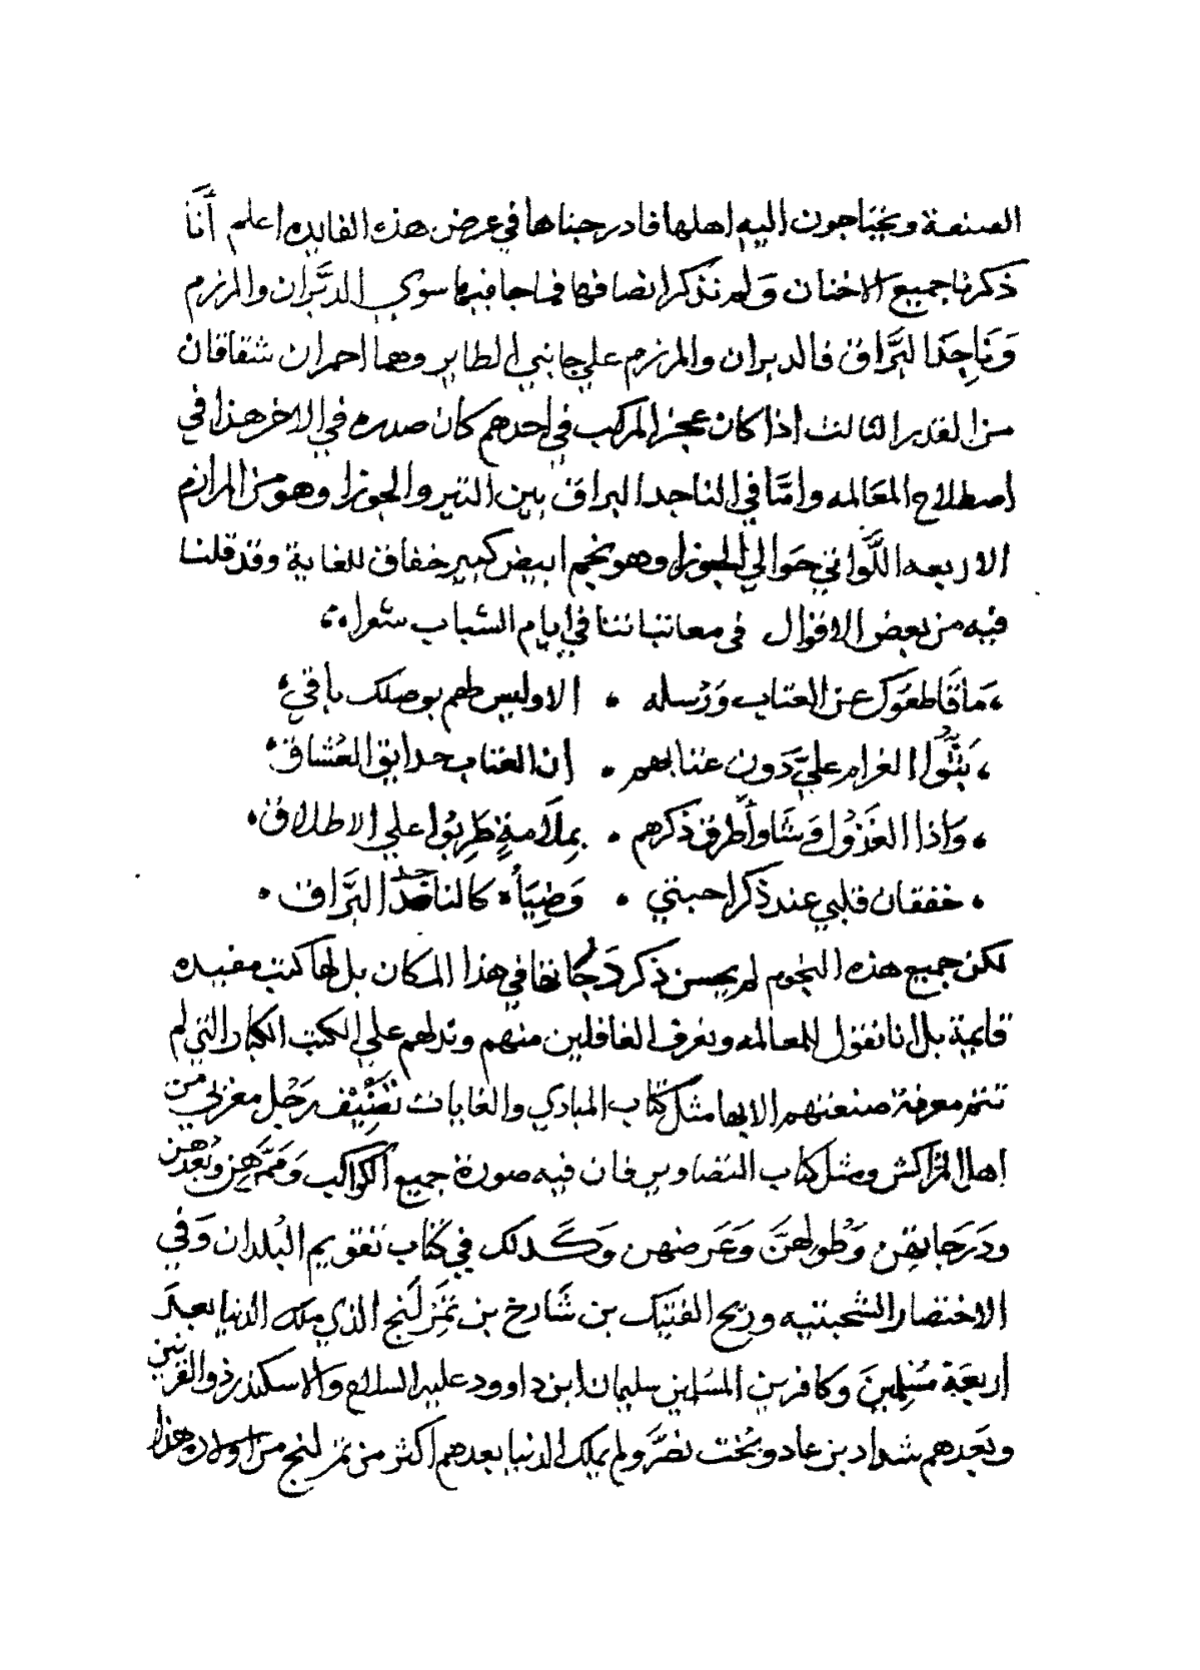 الصنعة ويحتاجون اليه اهلها فادرجناها في عرض هذه الفايده اعلم أنّا
ذكرنا جميع الاخنان ولم نذكر انصافها فما جا فيها سوي الدبّران والمرزم
وناجذا لبرّاق فالدبران والمرزم علي جانبي الطاير وهما احمران شقاقان
من القدر الثالث اذا كان عجز المركب في احدهم كان صدره في الاخر هذا في
اصطلاح المعالمه وامّا في الناجد البراق بين التير والجوزا وهو من المرازم
الاربعه اللّواتي حوالي الجوزا وهو نجم ابيض كبير خفاق للغاية وقد قلنا
فيه من بعض الاقوال في معاتباتنا في ايام الشباب شعرا
ما قاطعوك عن العتاب ورسله • الا وليس لهم بوصلك باقي
بثّوا الغرام عليّ دون عتابهم • ان العتاب حدايق العشاق
واذا العذول وشا وأطرق ذكرهم • بملامةٍ طربوا علي الاطلاق
خفقان قلبي عند ذكر احبتي • وضيأه كالناجد البرّاق
لكن جميع هذه النجوم لم يحسن ذكر درجاتها في هذا المكان بل لها كتب مفيده
قايمة بل اننا نقول للمعالمه ونعرف الغافلين منهم وندلهم علي الكتب الكبار التي لم
تتم معرفة صنعتهم الا بها مثل كتاب المبادي والغايات تصنيف رجل مغربي من
اهل المراكش ومثل كتاب التصاوير فان فيه صورة جميع الكواكب وممرّهن وبعدهن
ودرجاتهن وطولهنّ وعرضهن وكذلك في كتاب تقويم البلدان وفي
الاختصار الشحبنيه وزيح الفتيك بن شارخ بن تمرلنج الذي ملك الدنيا بعد
اربعة مسلمين وكافرين المسلمين سليمان ابن داوود عليه السلام والاسكندر ذو القرنين
وبعدهم شداد بن عاد وبخت نصّر ولم يملك الدنيا بعدهم اكثر من تمرلنج من اولاده هذا